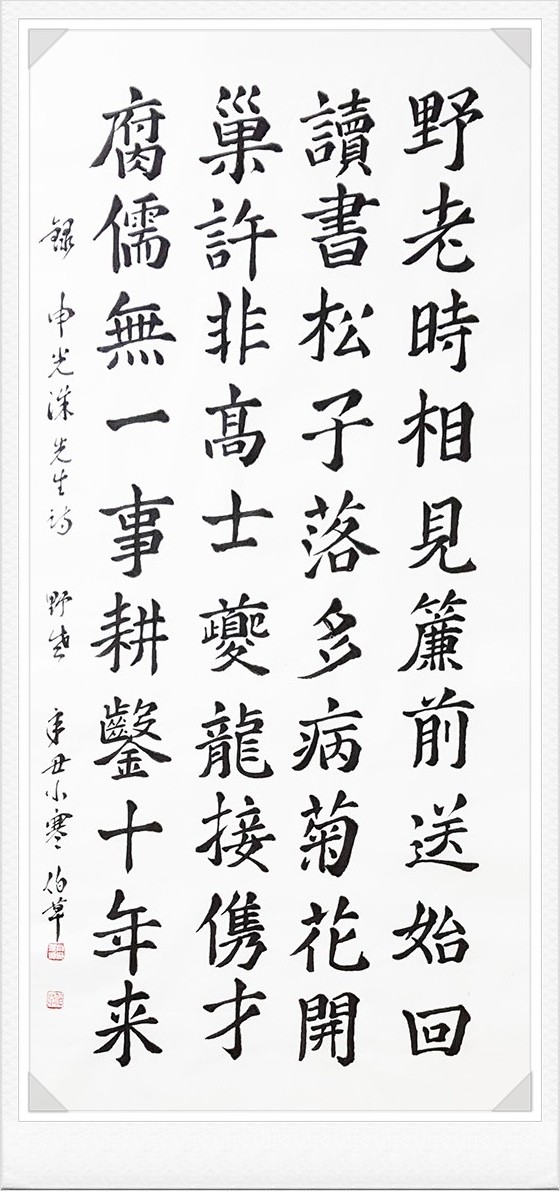 野老時相見簾前送始回
讀書松子落多病菊花開
巢許非高士夔龍接儁才
腐儒無一事耕鑿十年来
錄 申光洙先生詩 野叟 辛丑小寒 伯草